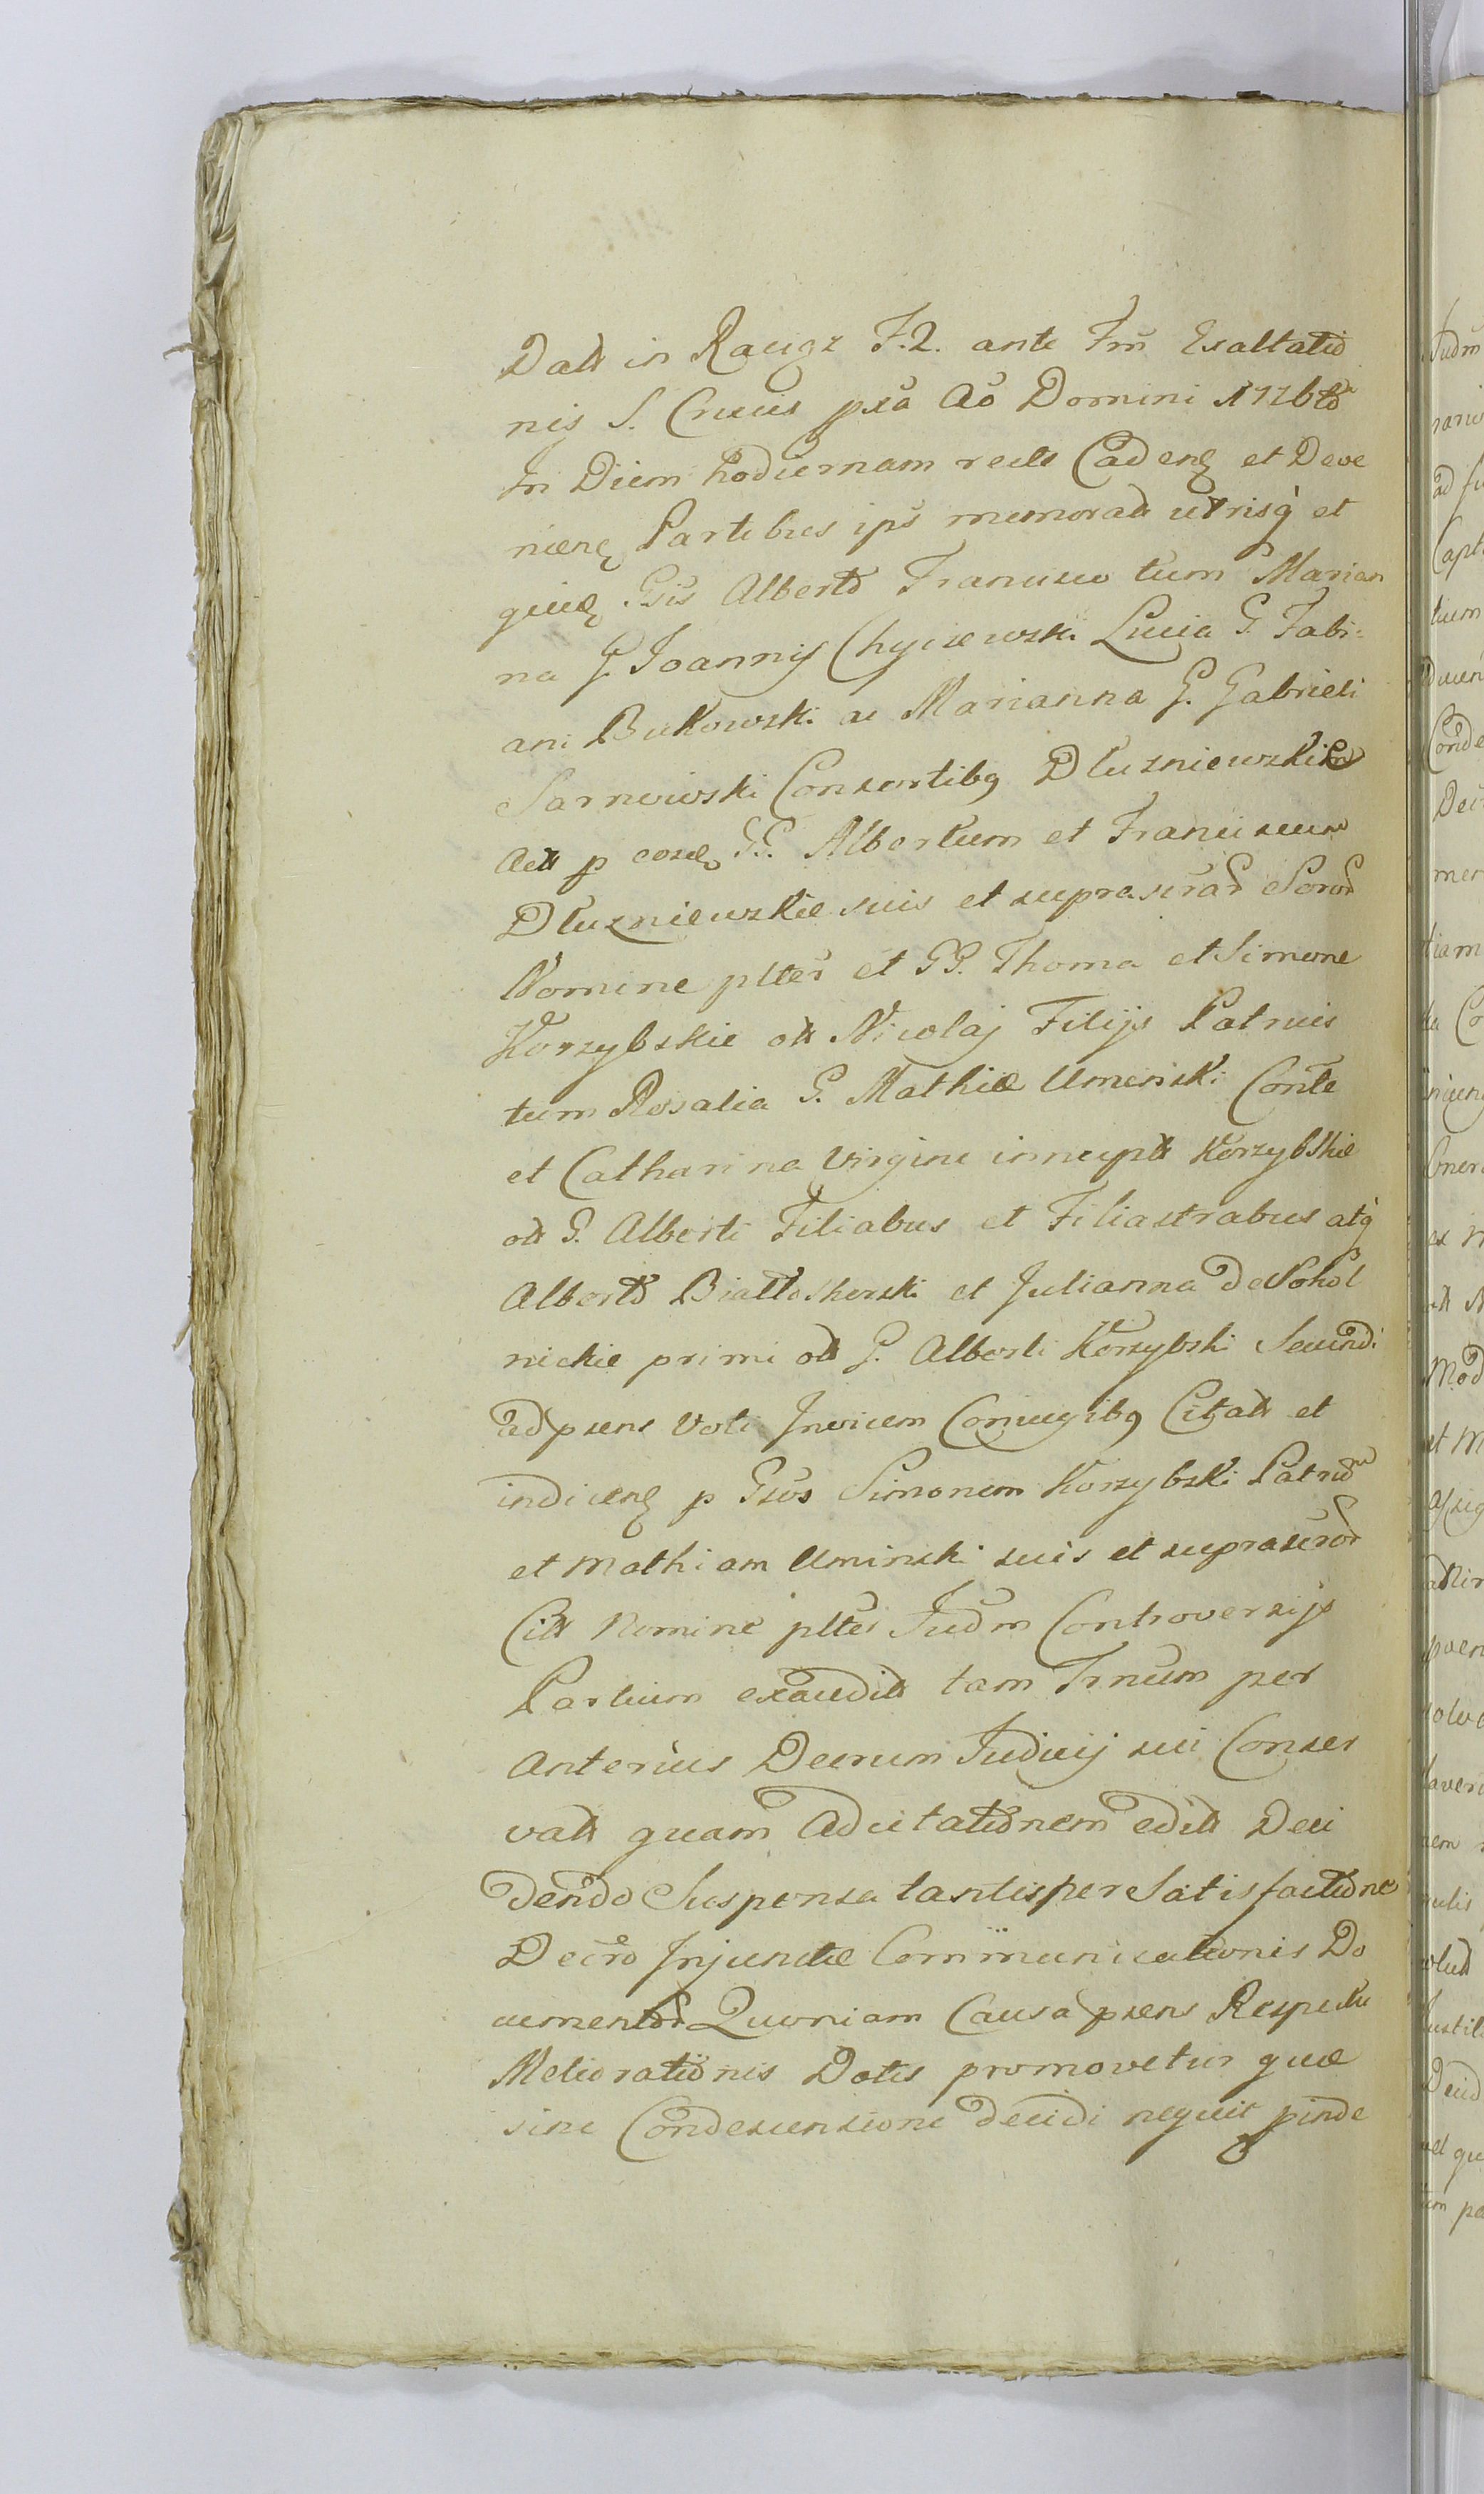 Datt in Raciąz F. 2. ante Fm̄ Exaltatio
nis S. Crucis pxa Ao Domini 1726to
In Diem hodiernam recte Caden et Deve
nien Partibus ips memoratt utrisq et
quidē Gsis Alberto Francisco tum Marian
na G Joannis Chyczewski Lucia G. Fabi:
ani Bukowski ac Marianna G. Gabrieli
Sarnowski Consortibq Dłuzniewskim
Actt p eosd GG. Albertum et Franciscum
Dłuzniewskie suis et suprascrar Soror
Nomine plter et GG. Thoma et Simone
Korzybskie ott Nicolaj Filijs Patruis
tum Rosalia G. Mathiæ Umenski Conte
et Catharina Virgine innuptt Korzybskie
ott G. Alberti Filiabus et Filiastrabus atq
Alberto Białłoskorski et Julianna de Sokol
nickie primi ott G. Alberti Korzybski Secundi
ad psens Voti Invicem Conjugibq Citatt et
indicen p Gsos Simonem Korzybski Patruo
et Mathiam Uminski suis et suprascror
Citt Nomine plter Judm Controversijs
Partium exauditt tam Trnum per
Anterius Decrum Judicij sui Conser
vatt quam Adcitationem editt Deci
dendo Suspensa tantisper Satisfactione
Decro Injunctæ Communicationis Do
cumentor Quoniam Causa psens Respectu
Meliorationis Dotis promovetur quæ
sine Condescensione decidi nequit pinde